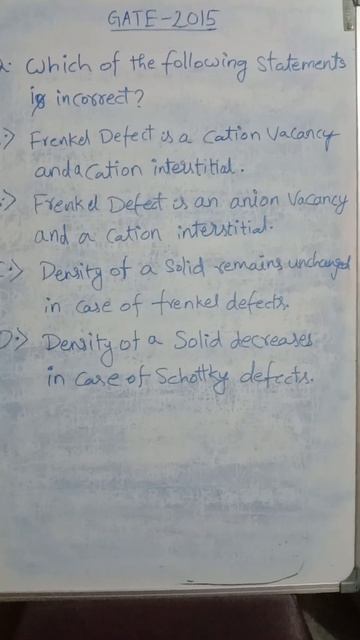 GATE-2015
Which of the following Statements
is incorrect?
Frenkel Defect is a Cation Vacancy
and a Cation interstitial.
Frenkel Defect is an anion Vacancy
and a Cation interstitial.
Density of a Solid remains unchanged
in case of frenkel defects.
D:> Density of a Solid decreases
in case of Schottky defects.